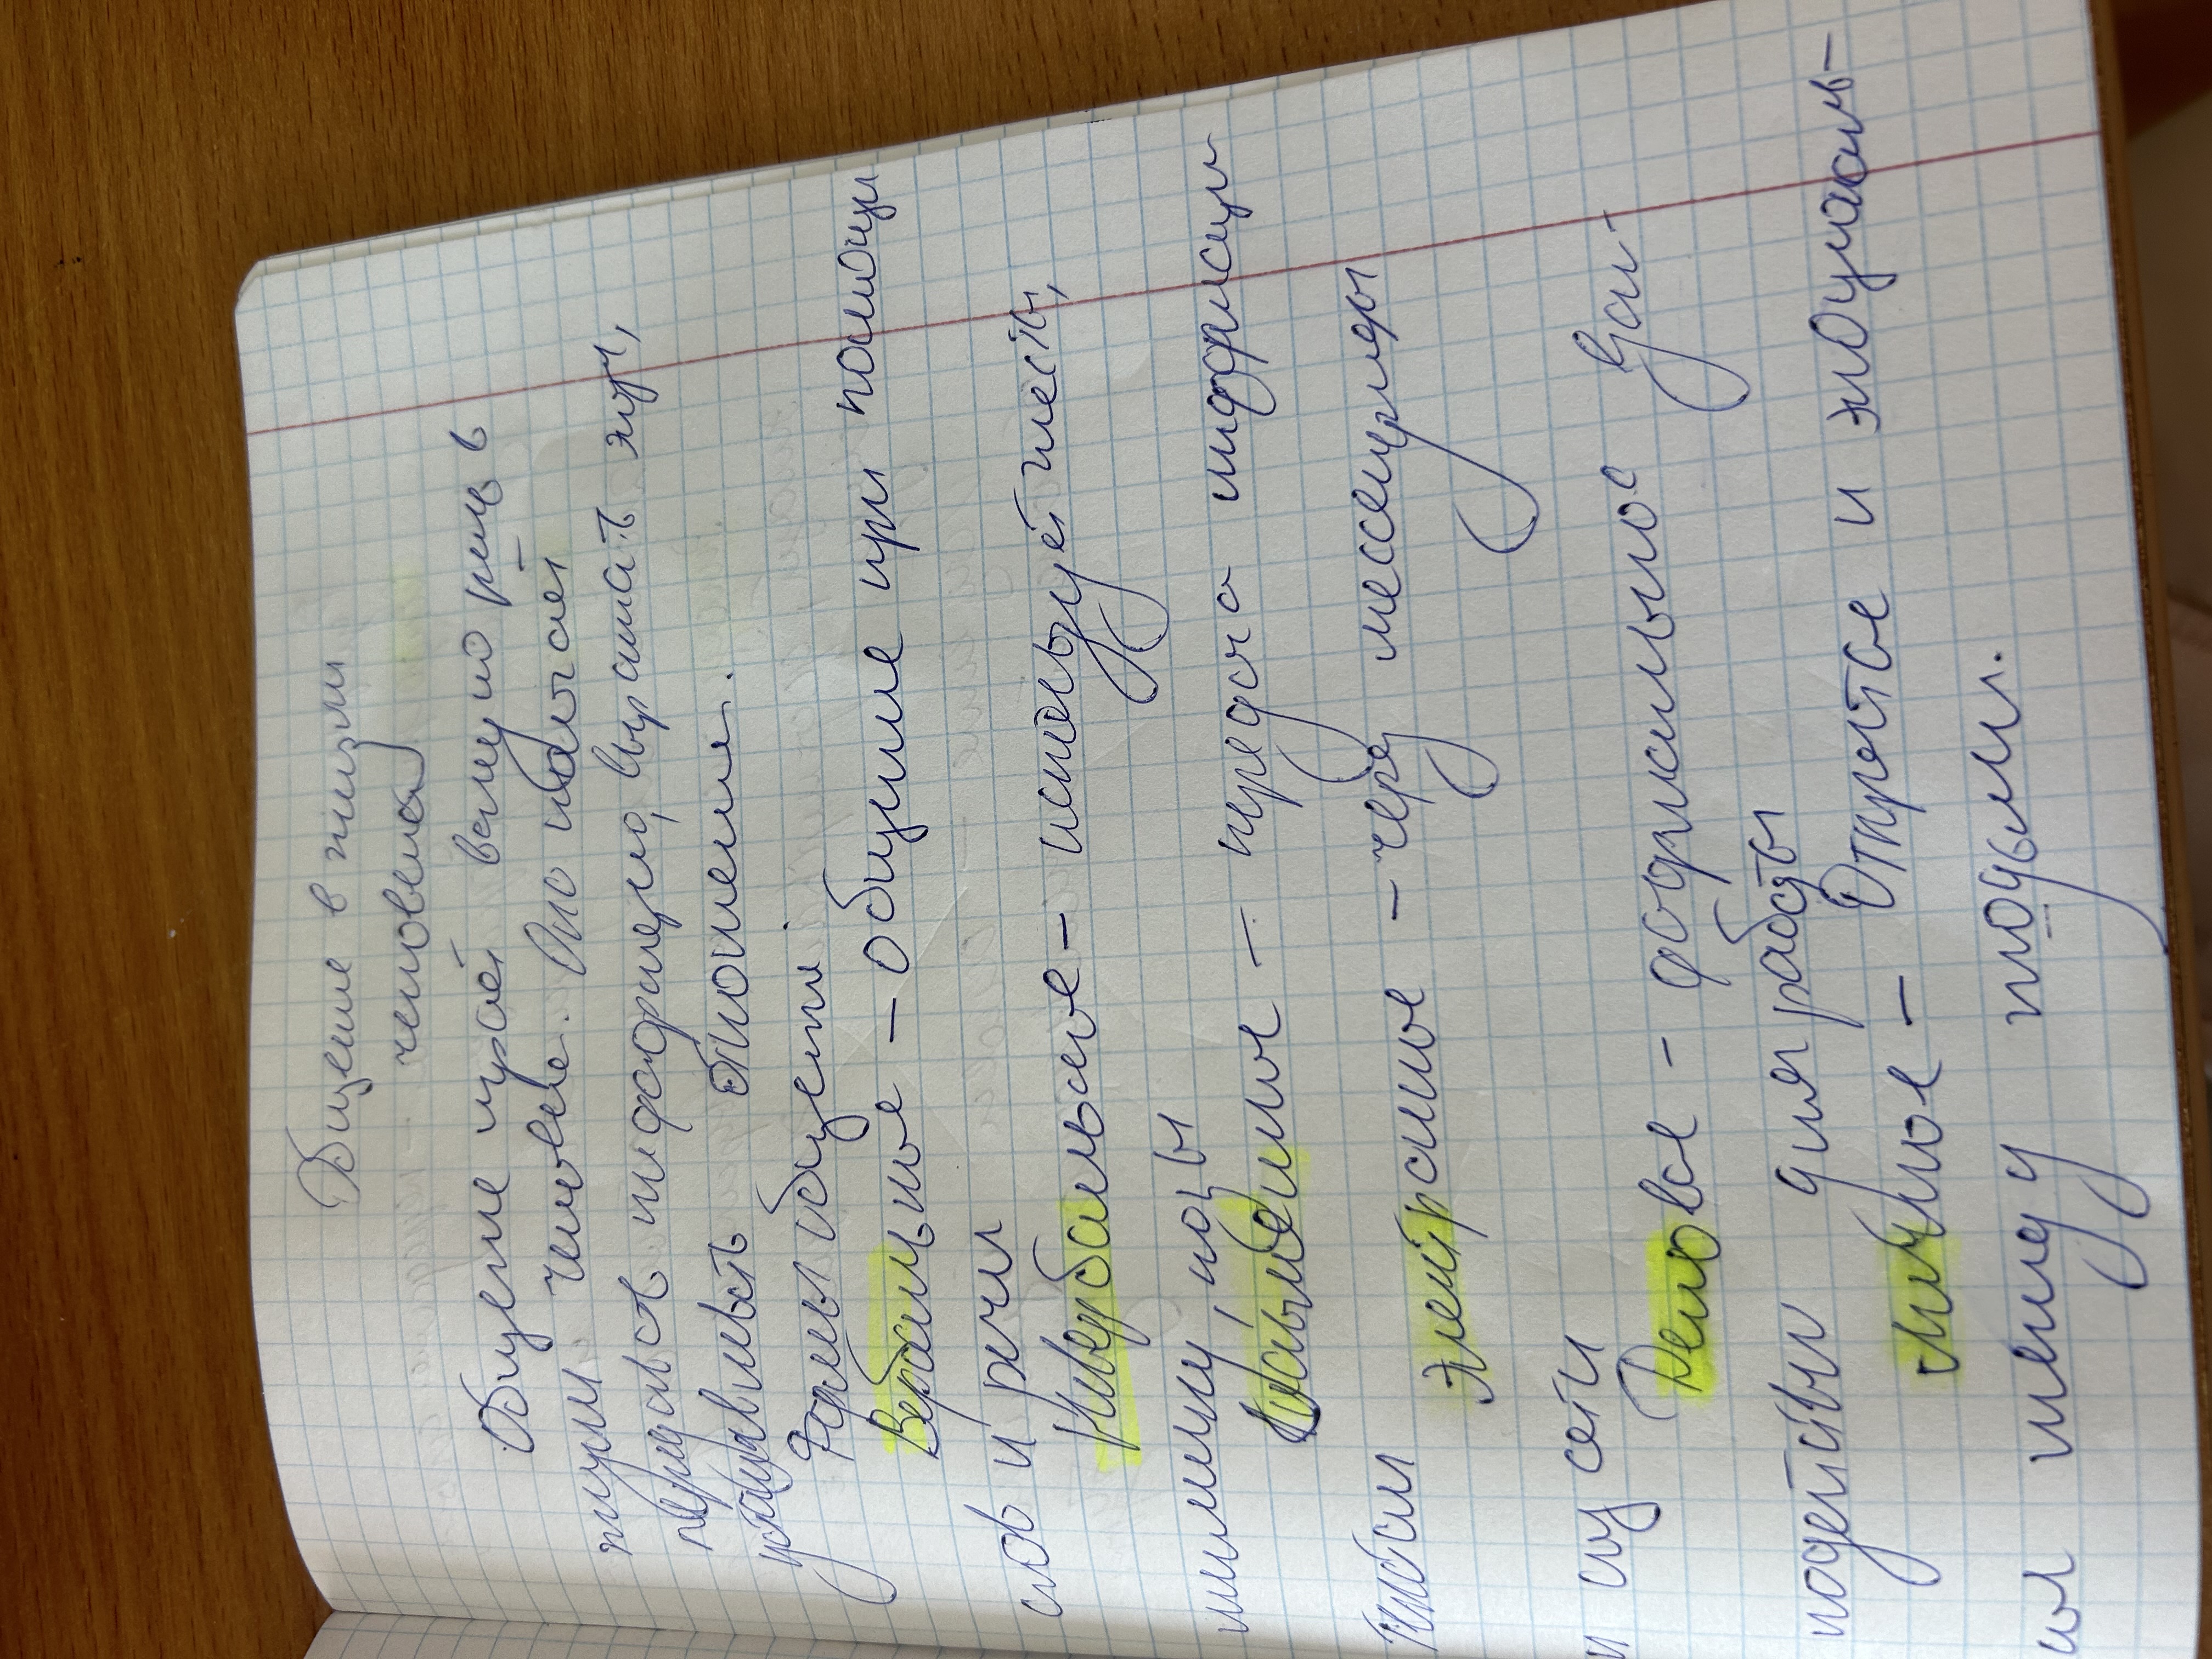 Общение в жизни
человека
Общение играет важную роль в
жизни человека. Оно помогает
передавать информацию, выражать
устанавливать отношения.
Формы общения:
Вербальное – общение при помощи
слов и речи
Невербальное – использует жесты,
мимику, позы
Письменное – передача информации
Электронное – через мессенджеры
и соц сети
Деловое – формальное
для работы
Личное – Открытое и эмоциональ-